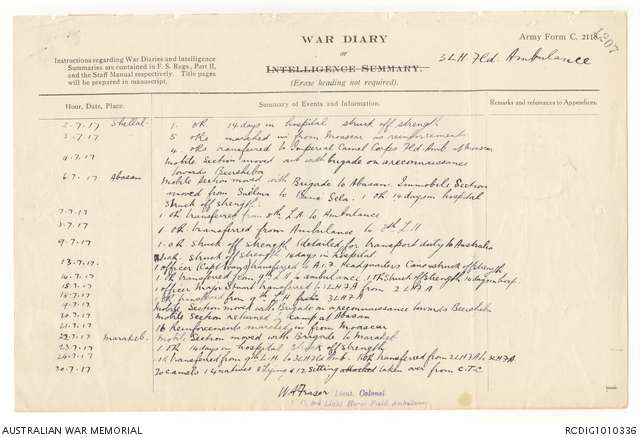 1207
WAR DIARY
or
INTELLIGENCE SUMMARY.
(Erase heading not required).
Army Form C. 2118.
3 L H Fld Ambulance
Instructions regarding War Diaries and Intelligence
Summaries are contained in F. S. Regs., Part II,
and the Staff Manual respectively. Title pages
will be prepared in manuscript.
Hour, Date, Place.
Summary of Events and Information.
Remarks and references to Appendices.
2.7.17 Shellal 1. oth 14 days in hospital struck off strength
3.7.17 5 oRs marched in from Moascar as reinforcement
4 oRs transferred to Imperial Camel Corps Fld Amb
4.7.17 Mobile Section moved out with brigade on a reconnaissance
towards Beersheba
6.7.17 Abasan Mobile Section moved with Brigade to Abasan. Immobile Section
moved from to Sela. 1 oth 14 days in hospital
Struck off strength.
7.7.17 1 oth transferred from 8th L.H. to Ambulance
1 oth transferred from Ambulance to L.H
9.7.17 1 oth struck off strength (detailed for transport duty to Australia
struck off strength 14 days in hospital.
13.7.17 1 officer (Capt ) transferred to A.I.F. Headquarters Cairo struck off strength
14.7.17 1 oth transferred from 9th L H to ambulance. 1 oth struck off strength 14 days in hosp.
15.7.17 1 officer Major Stuart transferred to 1 L H F A from 2 L H F A
1 oth transferred from 9th L H 3 L H F A
Mobile Section moved with Brigade on a reconnaissance towards Beersheba
20.7.17 Mobile Section returned to camp at Abasan
21.7.17 16 Reinforcements marched in from Moascar
22.7.17 Marakeb Mobile Section moved with Brigade to Marakeb
23.7.17 1 oth 14 days in hospital struck off strength
24.7.17 1 oR transferred from 9th L.H. to 3 L H Fld Amb. 1 oth transferred from 2 L H F A to 3 L H F A.
30.7.17 20 camels 14 natives 8 lying & 12 sitting taken over from C.T.C
W A Fraser Lieut. Colonel
O.C. 3rd Light Horse Field Ambulance
AUSTRALIAN WAR MEMORIAL
RCDIG1010336